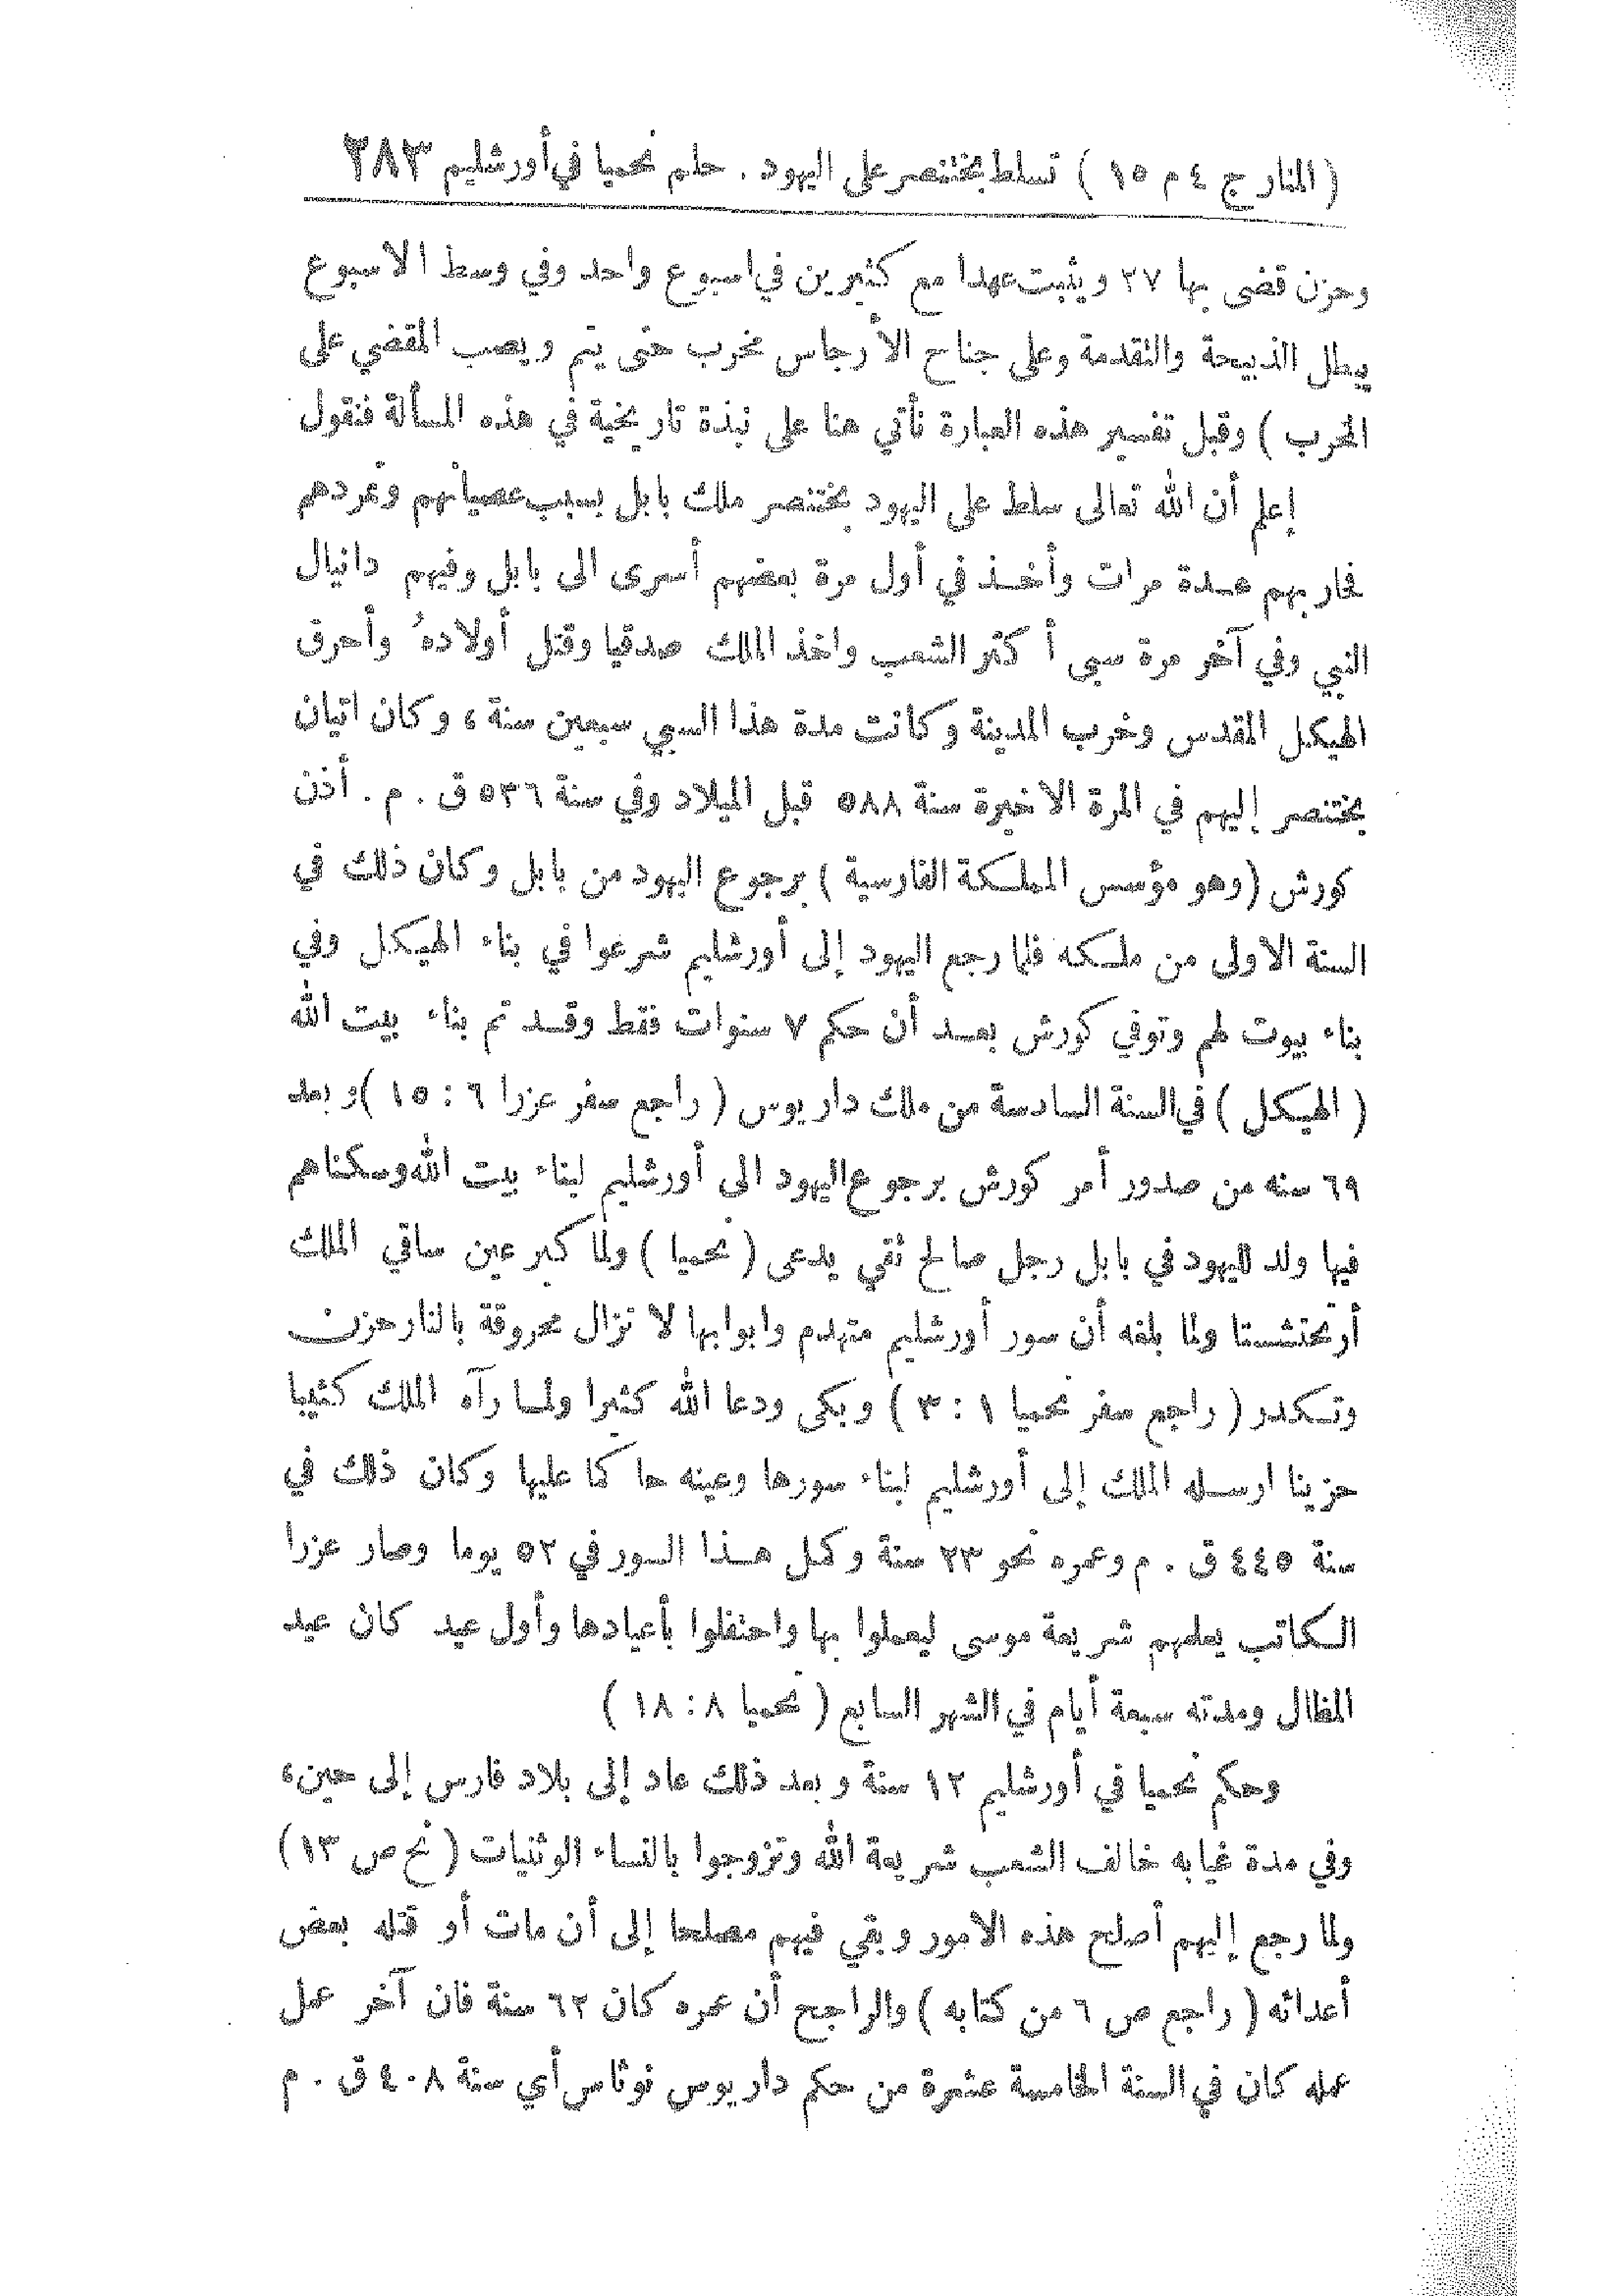 ( المنار ج ٤ م ١٥ ) تسلط بختنصر على اليهود . حلم نحميا في أورشليم ٢٨٣
وحزن قضى بها ٢٧ ويثبت عهدا مع كثيرين في اسبوع واحد وفي وسط الاسبوع
يبطل الذبيحة والتقدمة وعلى جناح الأرجاس مخرب حتى يتم ويصب المقضي على
المخرب ) وقبل تفسير هذه العبارة نأتي هنا على نبذة تاريخية في هذه المسألة فنقول
إعلم أن الله تعالى سلط على اليهود بختنصر ملك بابل بسبب عصيانهم وتمردهم
فحاربهم عدة مرات وأخذ في أول مرة بعضهم أسرى الى بابل وفيهم دانيال
النبي وفي آخر مرة سبى أكثر الشعب واخذ الملك صدقيا وقتل أولادهُ وأحرق
الهيكل المقدس وخرب المدينة وكانت مدة هذا السبي سبعين سنة ، وكان اتيان
بختنصر إليهم في المرة الاخيرة سنة ٥٨٨ قبل الميلاد وفي سنة ٥٣٦ ق . م . أذن
كورش (وهو مؤسس المملكة الفارسية ) برجوع اليهود من بابل وكان ذلك في
السنة الاولى من ملكه فلما رجع اليهود إلى أورشليم شرعوا في بناء الهيكل وفي
بناء بيوت لهم وتوفي كورش بعد أن حكم ٧ سنوات فقط وقد تم بناء بيت الله
( الهيكل ) في السنة السادسة من ملك داريوس ( راجع سفر عزرا ٦ : ١٥ ) وبعد
٦٩ سنه من صدور أمر كورش برجوع اليهود الى أورشليم لبناء بيت الله وسكناهم
فيها ولد لليهود في بابل رجل صالح تقي يدعى ( نحميا ) ولما كبر عين ساقي الملك
أرتحتشستا ولما بلغه أن سور أورشليم متهدم وابوابها لا تزال محروقة بالنار حزن
وتكدر ( راجع سفر نحميا ١ : ٣ ) وبكى ودعا الله كثيرا ولما رآه الملك كئيبا
حزينا ارسله الملك إلى أورشليم لبناء سورها وعينه حاكما عليها وكان ذلك في
سنة ٤٤٥ ق . م وعمره نحو ٢٣ سنة وكمل هذا السور في ٥٢ يوما وصار عزرا
الكاتب يعلمهم شريعة موسى ليعملوا بها واحتفلوا بأعيادها وأول عيد كان عيد
المظال ومدته سبعة أيام في الشهر السابع ( نحميا ٨ : ١٨ )
وحكم نحميا في أورشليم ١٢ سنة وبعد ذلك عاد إلى بلاد فارس إلى حين ،
وفي مدة غيابه خالف الشعب شريعة الله وتزوجوا بالنساء الوثنيات ( نح ص ١٣ )
ولما رجع إليهم أصلح هذه الامور وبقي فيهم مصلحا إلى أن مات أو قتله بعض
أعدائه ( راجع ص ٦ من كتابه ) والراجح أن عمره كان ٦٢ سنة فان آخر عمل
عمله كان في السنة الخامسة عشرة من حكم داريوس نوثاس أي سنة ٤٠٨ ق . م